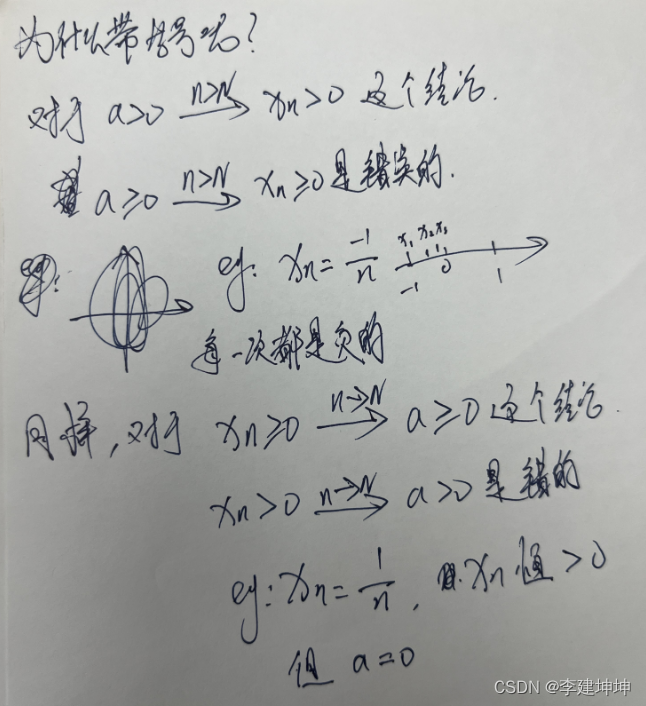 为什么带括号呢?
对于 a>0 n>N xn>0 这个结论.
a≥0 n>N xn≥0 是错误的.
eg: xn = -1/n x₁ x₂ x₃ -1 0 1
每一次都是负的
同样, 对于 xn≥0 n→N a≥0 这个结论.
xn>0 n→N a>0 是错的
eg: xn = 1/n, xn 恒 >0
但 a=0
CSDN @李建坤坤